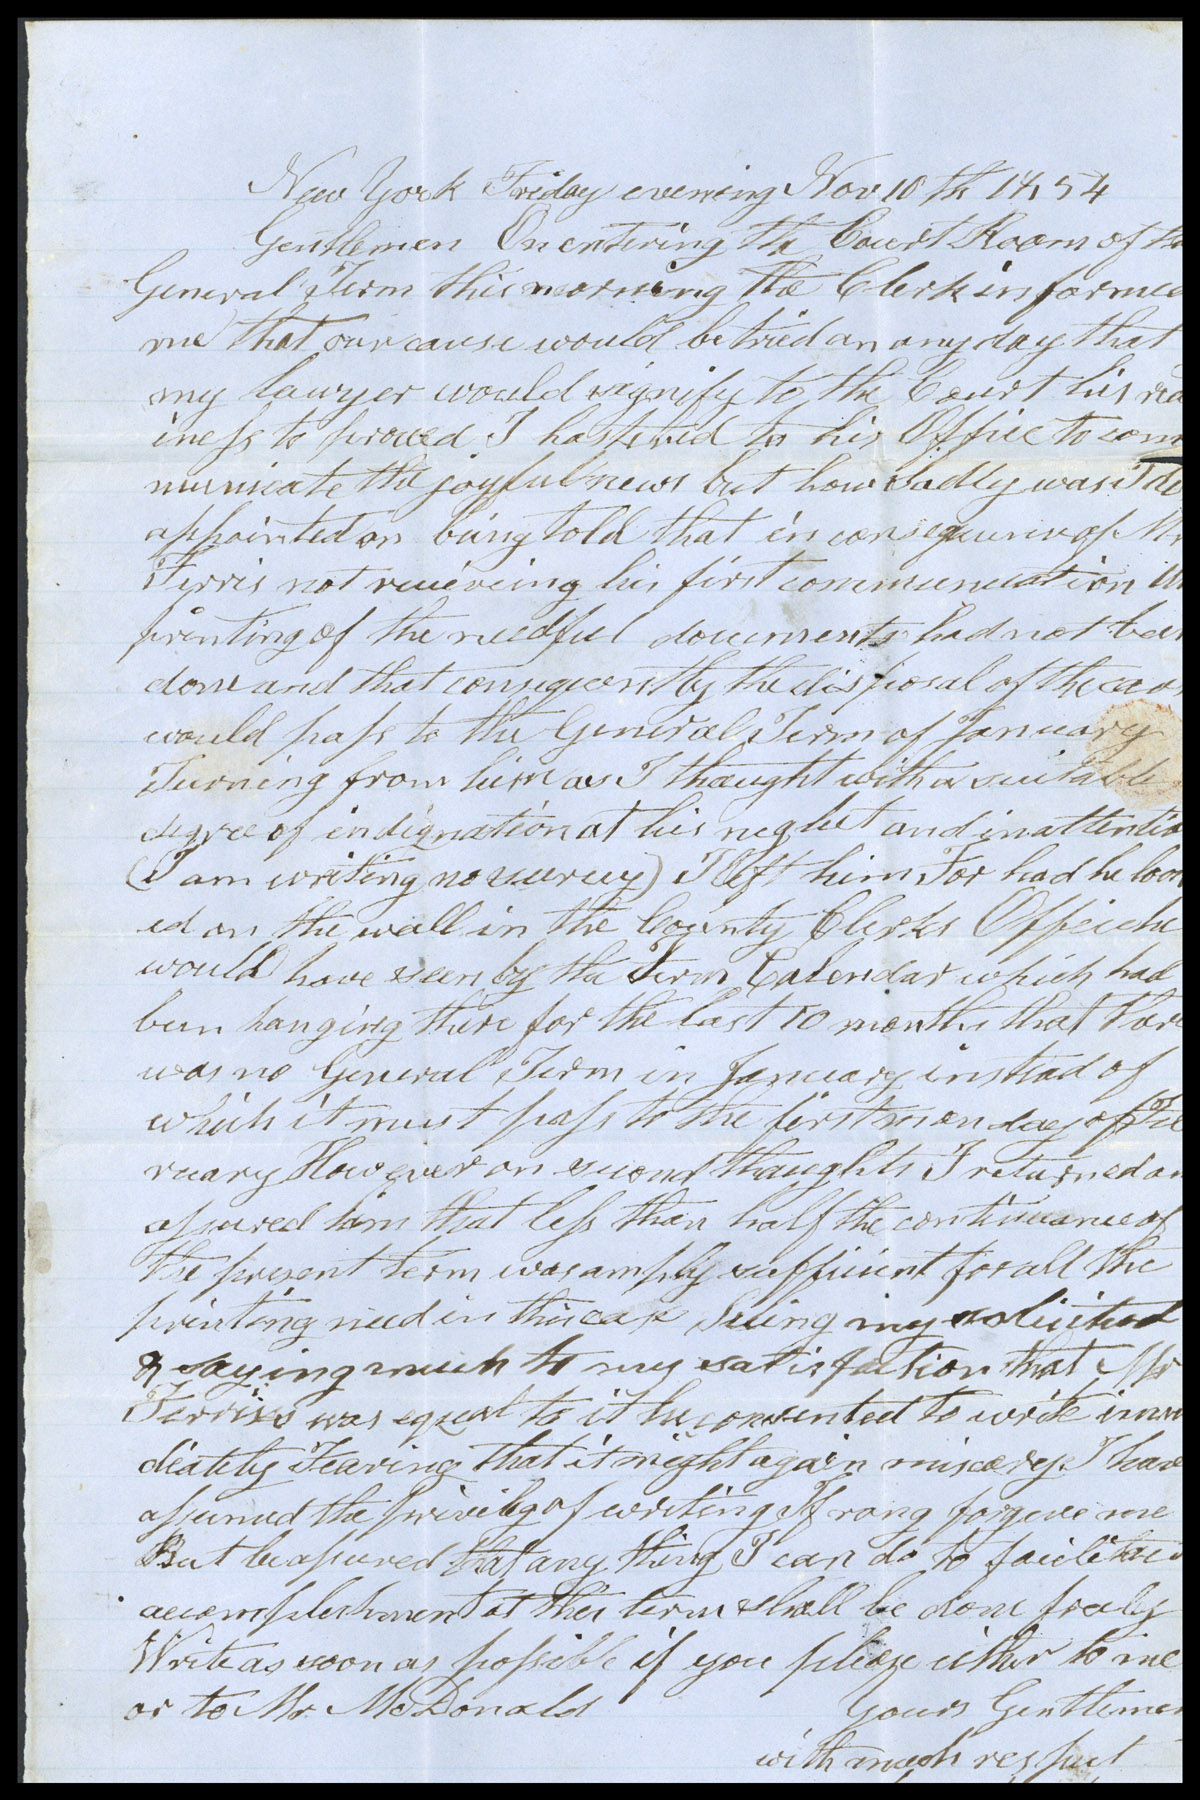 New York Friday evening Nov 10th 1854
Gentlemen On entering the Court Room of the
General Term this morning the Clerk informed
me that our cause would be tried on any day that
my lawyer would signify to the Court his read
iness to proceed I hastened to his Office to com
municate the joyful news but how sadly was I dis
appointed on being told that in consequence of Mr
Ferris not receiveing his first communication the
printing of the needful documents had not been
done and that consequently the disposal of the case
would pass to the General Term of January
Turning from him as I thought with a suitable
degree of indignation at his neglect and inattentio
(I am writing no secrecy) I left him For had he look
ed on the wall in the County Clerks Office he
would have seen by the Term Calendar which had
been hanging there for the last 10 months that there
was no General Term in January instead of
which it must pass to the first monday of Feb
ruary However on second thoughts I returned and
assured him that less than half the continuance of
the present term was amply sufficient for all the
printing need in this case Seing my solicitud
& saying much to my satisfaction that Mr
Ferriss was equal to it he consented to write imme
diately Fearing that it might again miscarry I have
assumed the privileg of writing If rong forgive me
But be assured that any thing I can do to facilitate
accomplishment at this term shall be done freely
Write as soon as possible if you please either to me
or to Mr McDonald Yours Gentlemen
with much respect